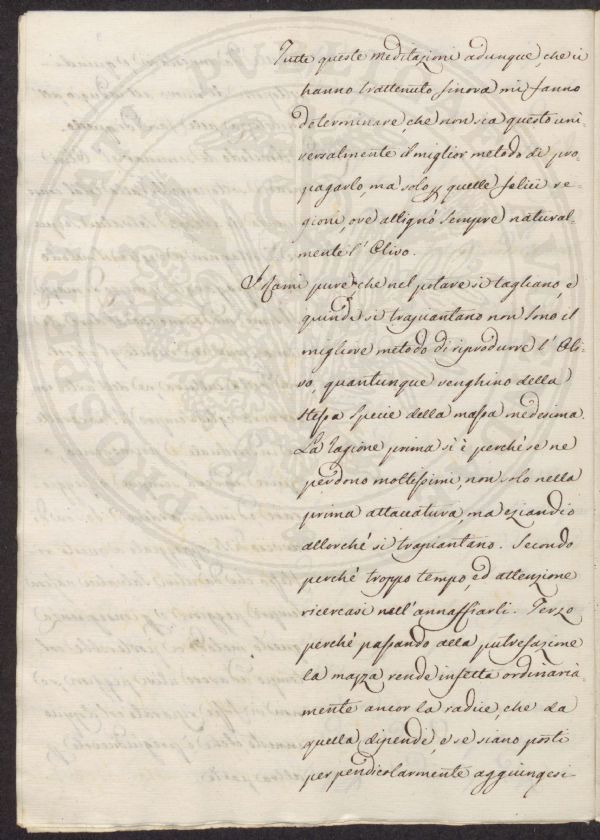 Tutte queste meditazioni adunque, che ci
hanno trattenuto finora mi fanno
determinare, che non sea questo uni
versalmente il miglior metodo di pro-
pagarlo, ma solo p quelle felici re-
gioni, ove allignò sempre natural-
mente l' Olivo.
I Rami pure che nel potare si tagliano, e
quindi si trapiantano non sono il
migliore metodo di riprodurre l' Oli-
vo, quantunque venghino della
stessa specie della massa medesima.
La ragione prima si è perché se ne
perdono moltissimi, non solo nella
prima attaccatura, ma eziandio
allorché si trapiantano. Secondo
perché troppo tempo, ed attenzione
ricercasi nell' annaffiarli. Terzo
perché passando alla putrefazione
la mazza rende infetta ordinaria
mente ancor la radice, che da
quella dipende, e se siano posti
perpendicolarmente aggiungesi
PROSPERITATI PUBLICAE